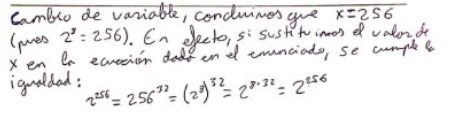 cambio de variable, concluimos que x=256
(pues 2⁸=256). En efecto, si sustituimos el valor de
x en la ecuación dada en el enunciado, se cumple la
igualdad:
2²⁵⁶ = 256³² = (2⁸)³² = 2⁸·³² = 2²⁵⁶